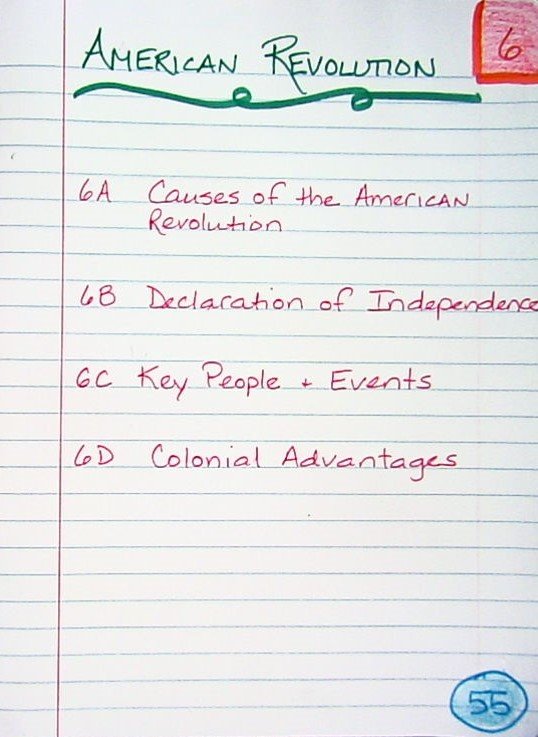 6
AMERICAN REVOLUTION
6A Causes of the AMERICAN
Revolution
6B Declaration of Independence
6C Key People + Events
6D Colonial Advantages
55